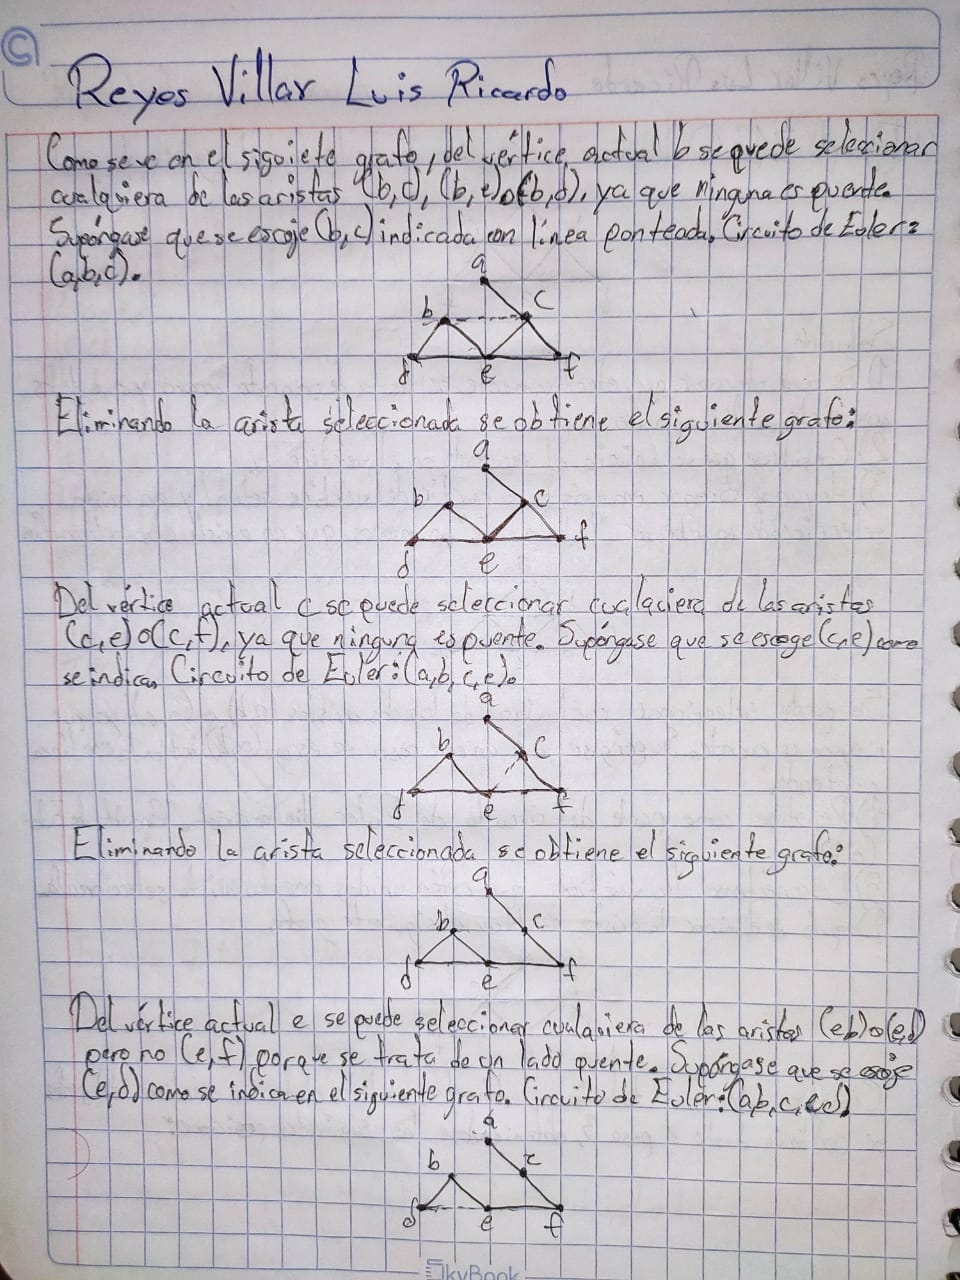 Reyes Villar Luis Ricardo
Como se ve en el siguiete grafo, del vértice actual b se puede seleccionar
cualquiera de las aristas (b,c), (b,e) o (b,d), ya que ninguna es puente.
Supóngase que se escoje (b,c) indicada con línea ponteada. Circuito de Euler:
(a,b,c).
a
b
c
d
e
f
Eliminando la arista seleccionada se obtiene el siguiente grafo:
a
b
c
d
e
f
Del vértice actual c se puede seleccionar cualquiera de las aristas
(c,e) o (c,f), ya que ninguna es puente. Supóngase que se escoge (c,e) como
se indica. Circuito de Euler: (a,b,c,e).
a
b
c
d
e
f
Eliminando la arista seleccionada se obtiene el siguiente grafo:
a
b
c
d
e
f
Del vértice actual e se puede seleccionar cualquiera de las aristas (e,b) o (e,d)
pero no (e,f) porque se trata de un lado puente. Supóngase que se escoje
(e,d) como se indica en el siguiente grafo. Circuito de Euler: (a,b,c,e,d)
a
b
c
d
e
f
SkyBook